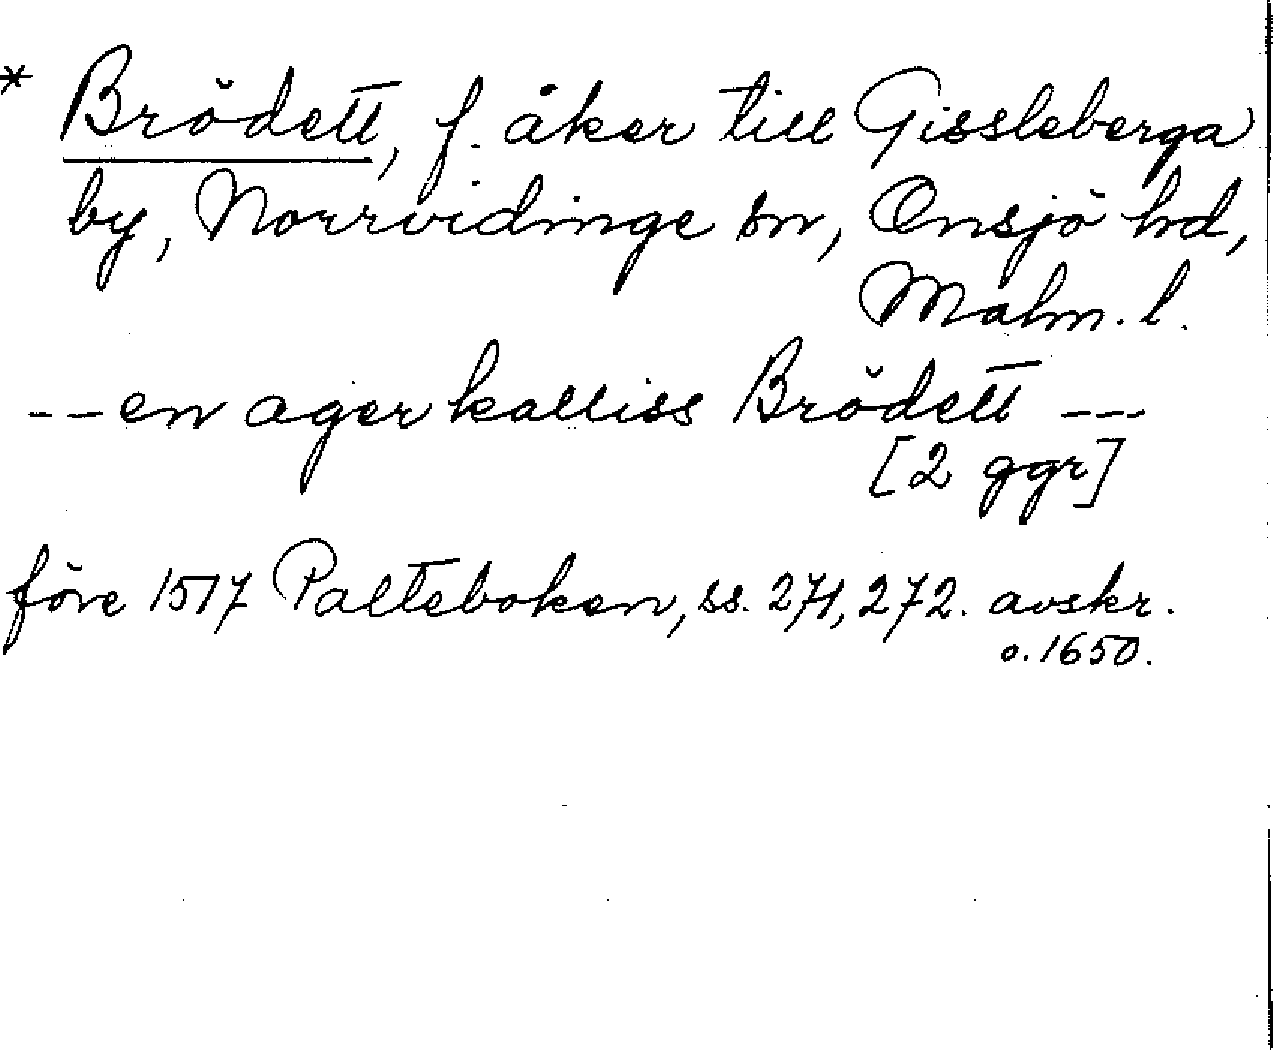 * Brödett, f. åker till Gissleberga
by, Norrvidinge sn, Onsjö hd,
Malm. l.
-- en ager kalliss Brödett ---
[2 ggr]
före 1517 Palteboken, ss. 271, 272. avskr.
o. 1650.